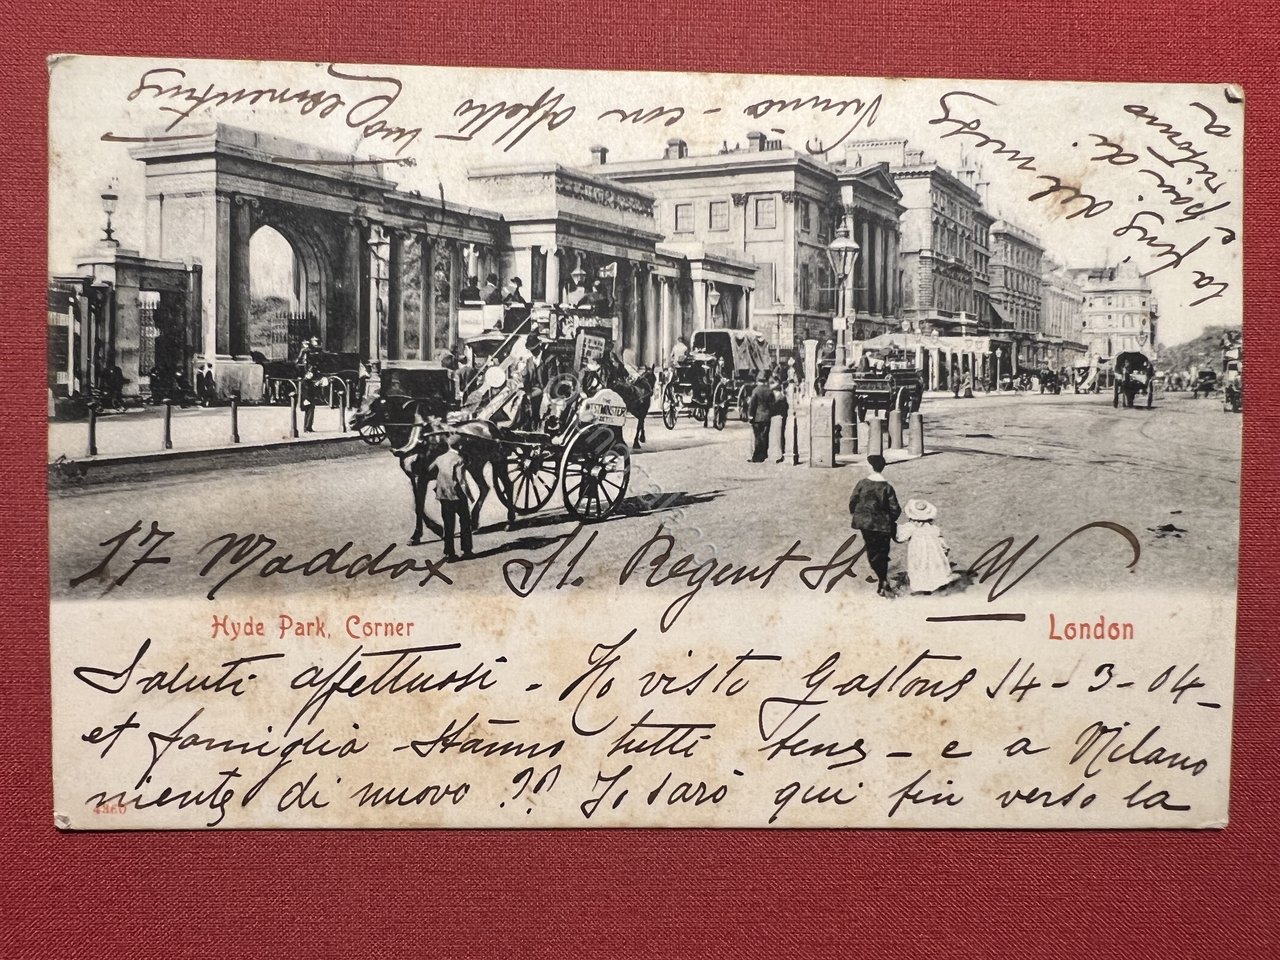 17 Maddox St. Regent St. W
Hyde Park, Corner
London
Saluti affettuosi - Ho visto Gastone 14-3-04-
et famiglia - Stanno tutti bene - e a Milano
niente di nuovo ?? Io sarò qui fin verso la
la fine del mese
e poi di
ritorno
a
Vienna - con affetto
tuo Clementino
THE
WESTMINSTER
4360